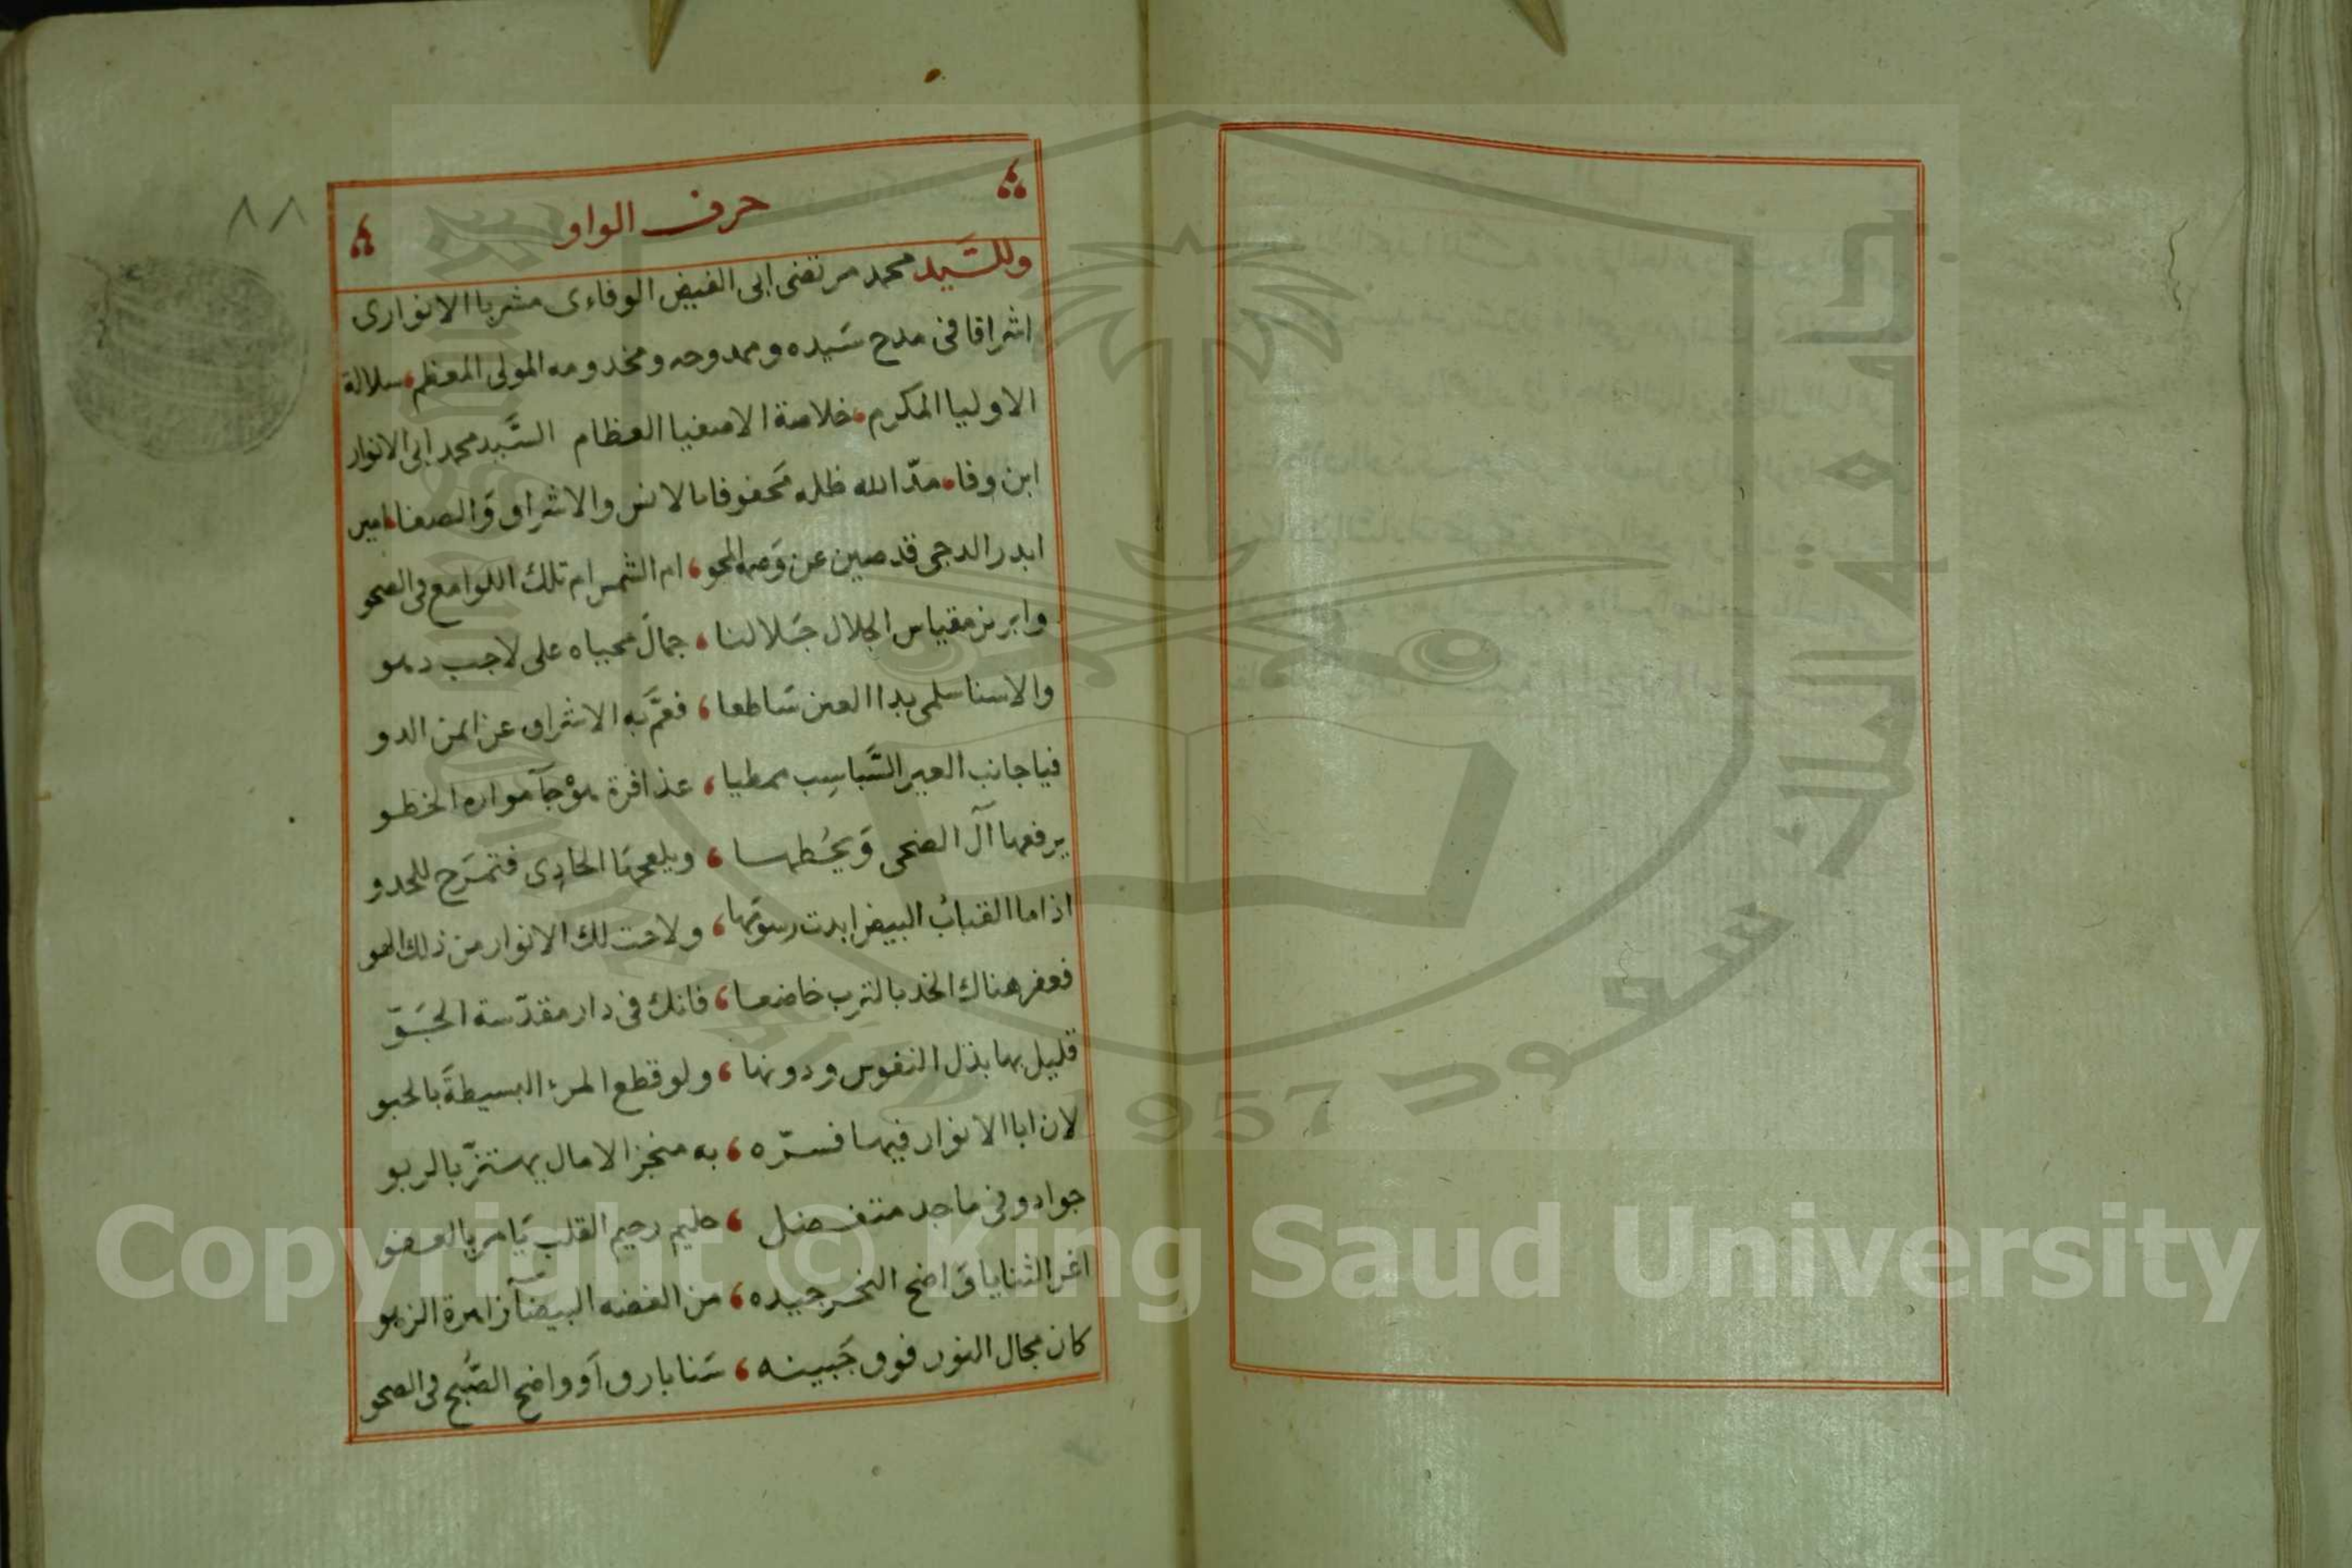 ٨٨
حرف الواو
وللسَّيد محمد مرتضى ابى الفيض الوفاءى مشربا الانوارى
اشراقا فى مدح سَيده وممدوحه ومخدومه المولى المعظم سلالة
الاوليا المكرم خلاصة الاصفيا العظام السَّيد محمد ابى الانوار
ابن وفا مدّ الله ظله مَحفوفا بالانس والاشراق وَالصفا امين
ابدر الدجى قد صين عن وَصمة المحو ، ام الشمس ام تلك اللوامع فى الصحو
وابريز مقياس الجلال جَلا لنا ، جمالَ محياه على لاحب دهو
والاسنا سلمى بدا العين سَاطعا ، فعمَّ به الاشراق عن ايمن الدو
فيا جانب العير السَّباسِب ممطيا ، عذافرة هوْجآ مواره الخطو
يرفعها آل الضحى وَيحُطهسا ، ويلعجهَا الحادِى فتمرَح للحدو
اذا ما القبابُ البيض ابدت رسوَمها ، ولاحت لك الانوار من ذلك الهو
فعفر هناك الخد بالترب خاضعا ، فانك فى دار مقدّسة الجَوّ
قليل بها بذل النفوس ودونها ، ولو قطع المرء البسيطةَ بالحبو
لان ابا الانوار فيها فسرّه ، به منجز الامال يهتزّ بالربو
جواد وفى ماجد متفضل ، حليم رحيم القلب يَامر بالعفو
اغر الثنايا وَاضح النحر جيده ، من الفضه البيضآ زاهرة الزهو
كان مجال النور فوق جَبينه ، سَنا بارق اَو واضح الصَّبح فى الصحو
Copyright © King Saud University
1957